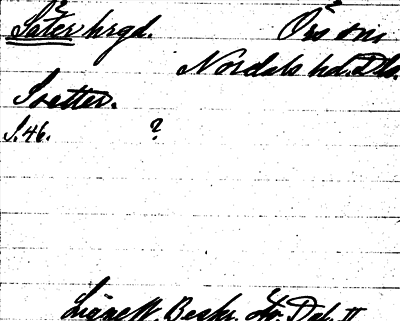 Säter hrgd. Örs sn
Nordals hd. Dls.
Sætter.
S. 46. ?
Lignell, Beskr. Dal. II